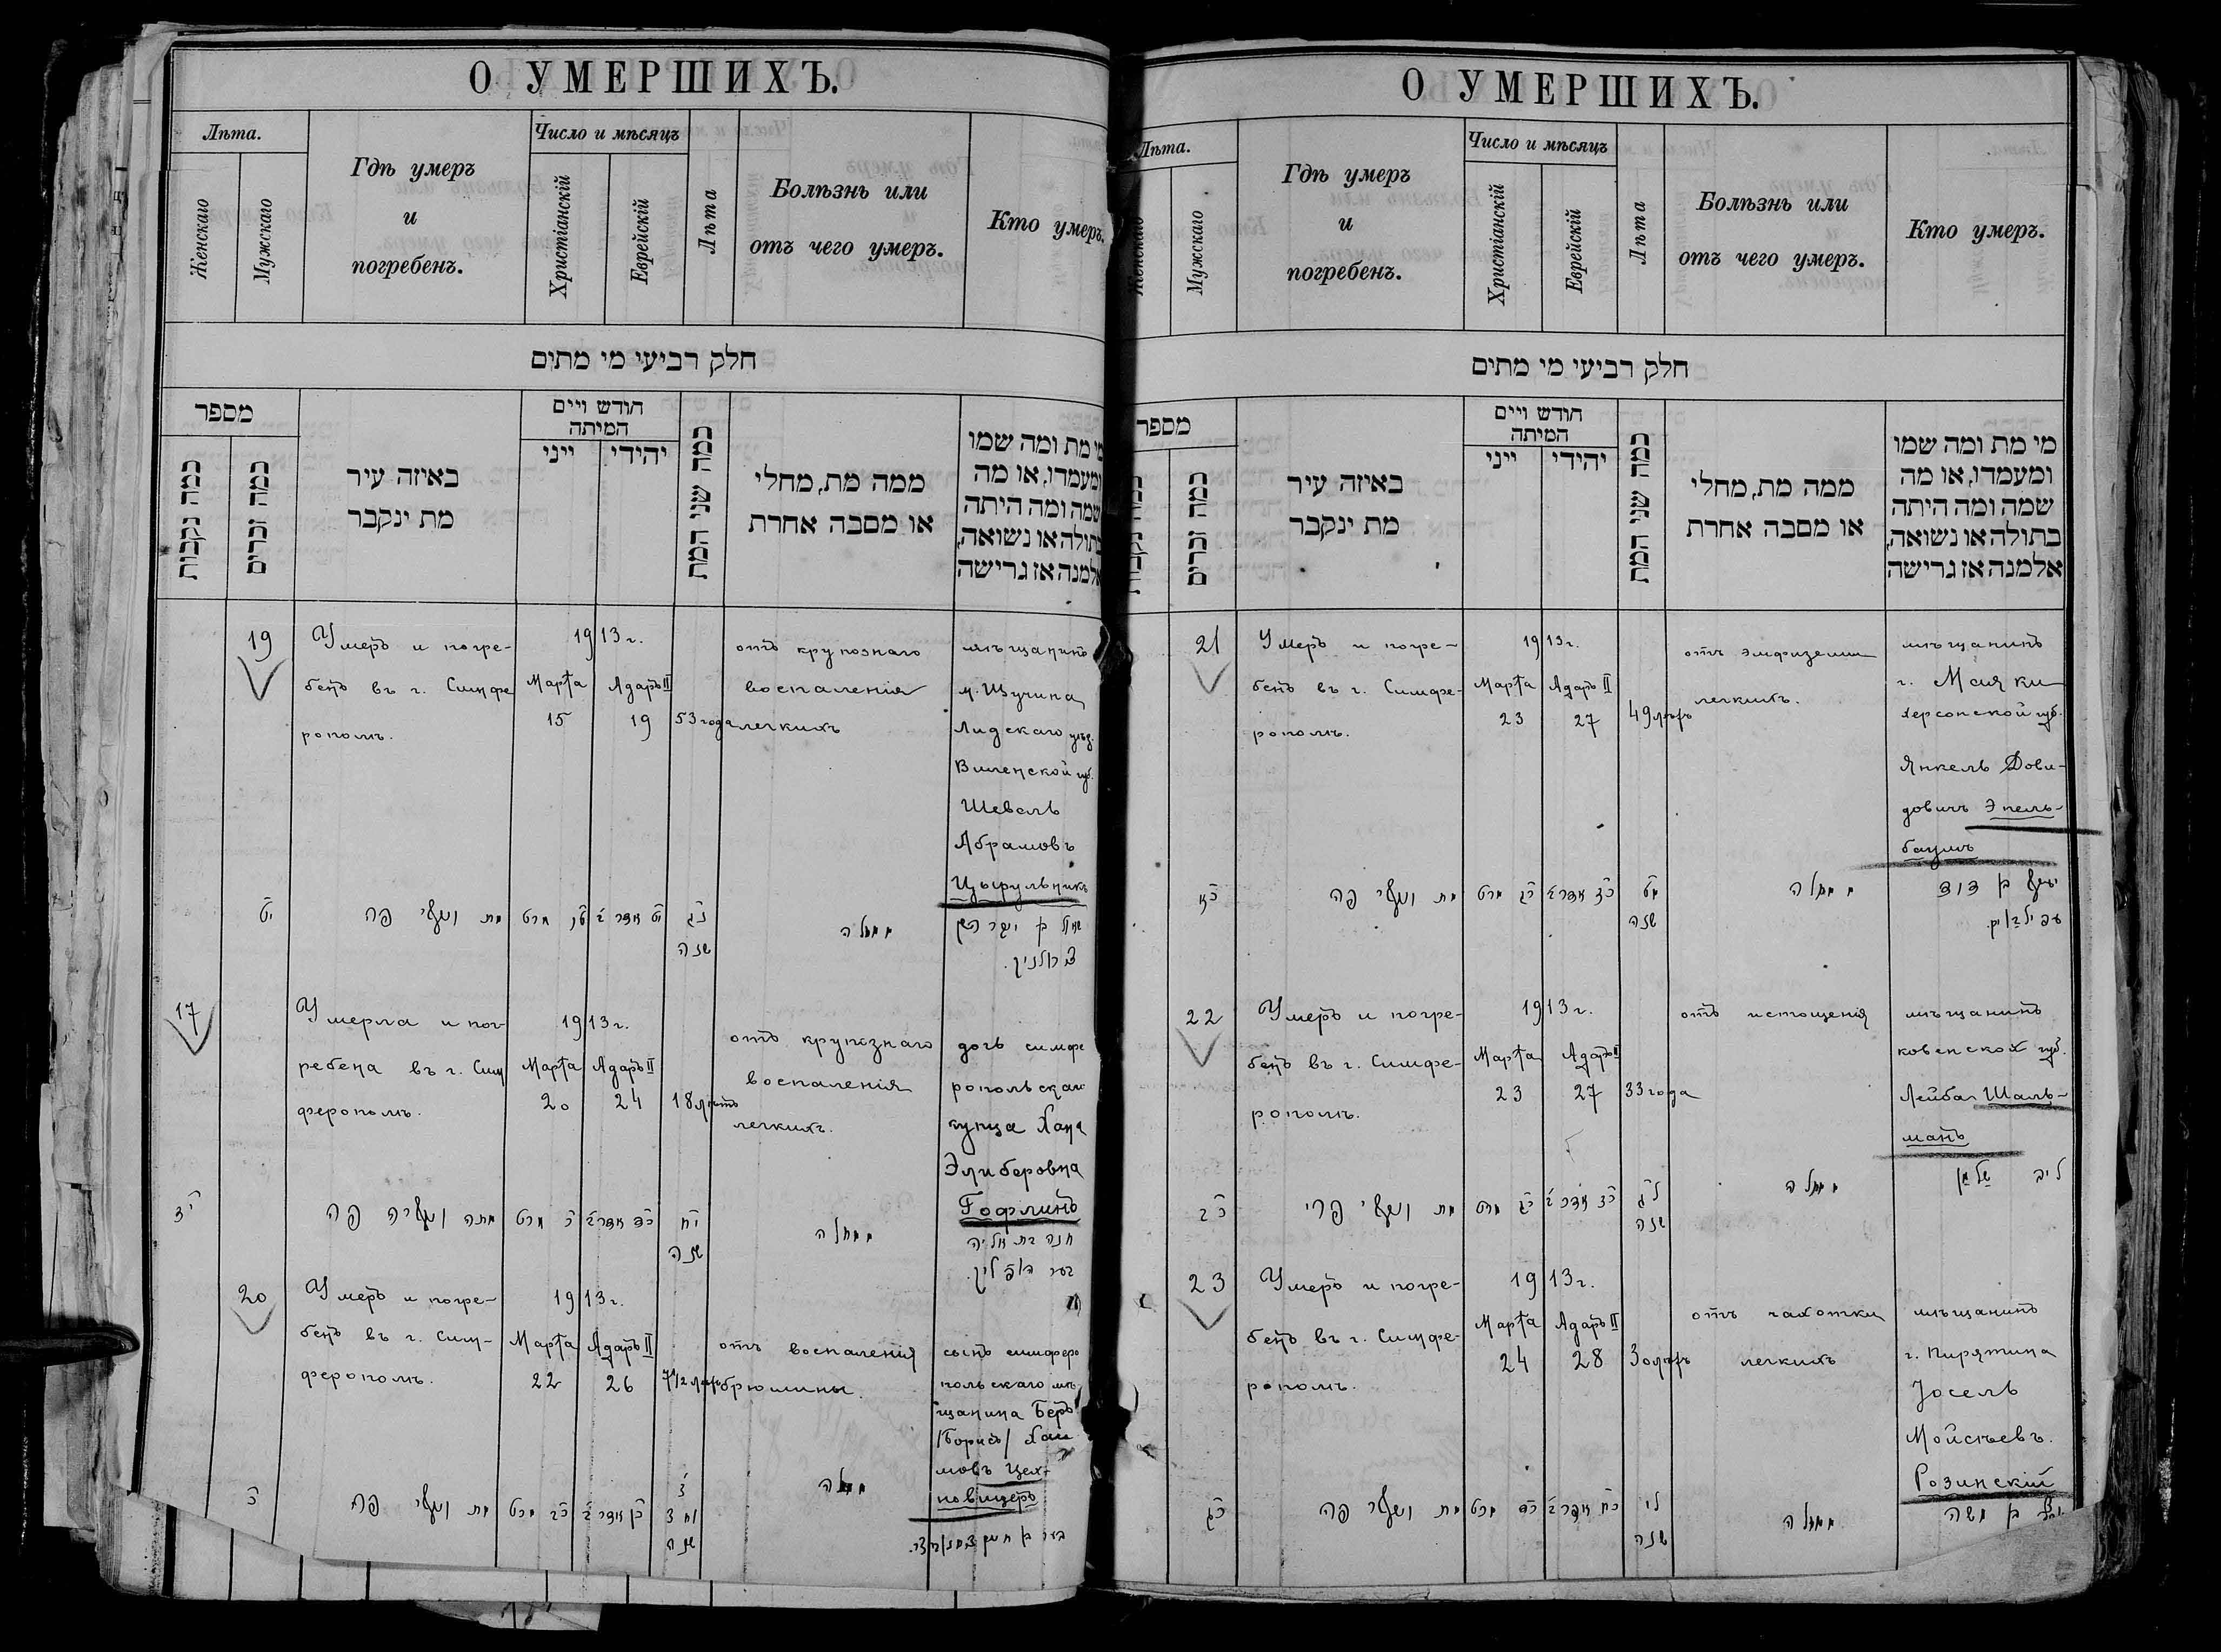 О УМЕРШИХЪ.
Лѣта.
Женскаго
Мужскаго
Гдѣ умеръ
и
погребенъ.
Число и мѣсяцъ
Христіанскій
Еврейскій
Лѣта
Болѣзнь или
отъ чего умеръ.
Кто умеръ.
חלק רביעי מי מתים
מספר
כמה נקבות
כמה זכרים
באיזה עיר
מת ינקבר
חודש ויים
המיתה
ייני
יהידי
כמה שני המת
ממה מת, מחלי
או מסבה אחרת
מי מת ומה שמו
ומעמדו, או מה
שמה ומה היתה
בתולה או נשואה,
אלמנה אז גרישה
19
Умеръ и погре-
бенъ въ г. Симфе
рополѣ.
1913 г.
Марта
15
Адаръ II
19
53 года
отъ крупознаго
воспаленія
легкихъ
мѣщанинъ
м. Щучина
Лидскаго уѣзд.
Виленской губ.
Шевель
Абрамовъ
Цырульникъ
יט
מת ונקבר פה
טו מרט
יט אדר
נג
שנה
ממחלה
17
Умерла и пог-
ребена въ г. Сим
ферополѣ.
1913 г.
Марта
20
Адаръ II
24
18 лѣтъ
отъ крупознаго
воспаленія
легкихъ.
дочь симфе
ропольскаго
купца Хана
Элиберовна
Гофлинъ
יז
מתה ונקברה פה
כ מרט
כד אדר
יח
שנה
ממחלה
חנה בת אליה
בער האפלין.
20
Умеръ и погре-
бенъ въ г. Сим-
ферополѣ.
1913 г.
Марта
22
Адаръ II
26
7 1/2 лѣтъ
отъ воспаленія
брюшины.
сынъ симферо
польскаго мѣ
щанина Беръ
/Борисъ/ Хаи
мовъ Цех-
новицеръ
כ
מת ונקבר פה
כב מרט
כו אדר
שנה
ממחלה
О УМЕРШИХЪ.
Лѣта.
Женскаго
Мужскаго
Гдѣ умеръ
и
погребенъ.
Число и мѣсяцъ
Христіанскій
Еврейскій
Лѣта
Болѣзнь или
отъ чего умеръ.
Кто умеръ.
חלק רביעי מי מתים
מספר
כמה נקבות
כמה זכרים
באיזה עיר
מת ינקבר
חודש ויים
המיתה
ייני
יהידי
כמה שני המת
ממה מת, מחלי
או מסבה אחרת
מי מת ומה שמו
ומעמדו, או מה
שמה ומה היתה
בתולה או נשואה,
אלמנה אז גרישה
21
Умеръ и погре-
бенъ въ г. Симфе-
рополѣ.
1913 г.
Марта
23
Адаръ II
27
49 лѣтъ
отъ эмфиземы
легкихъ.
мѣщанинъ
г. Маяки
Херсонской губ.
Янкель Дови-
довичъ Эпель-
баумъ
כא
מת ונקבר פה
כג מרט
כז אדר
מט
שנה
ממחלה
יעקב בן דוד
22
Умеръ и погре-
бенъ въ г. Симфе-
рополѣ.
1913 г.
Марта
23
Адаръ II
27
33 года
отъ истощенія
мѣщанинъ
ковенской губ.
Лейба Шаль-
манъ
כב
מת ונקבר
כג מרט
כז אדר
לג
שנה
ממחלה
ליב שלמן
23
Умеръ и погре-
бенъ въ г. Симфе-
рополѣ.
1913 г.
Марта
24
Адаръ II
28
30 лѣтъ
отъ чахотки
легкихъ
мѣщанинъ
г. Пирятина
Іосель
Мойсѣевъ.
Розинскій
כג
מת ונקבר פה
כד מרט
כח אדר
שנה
ממחלה
בן משה